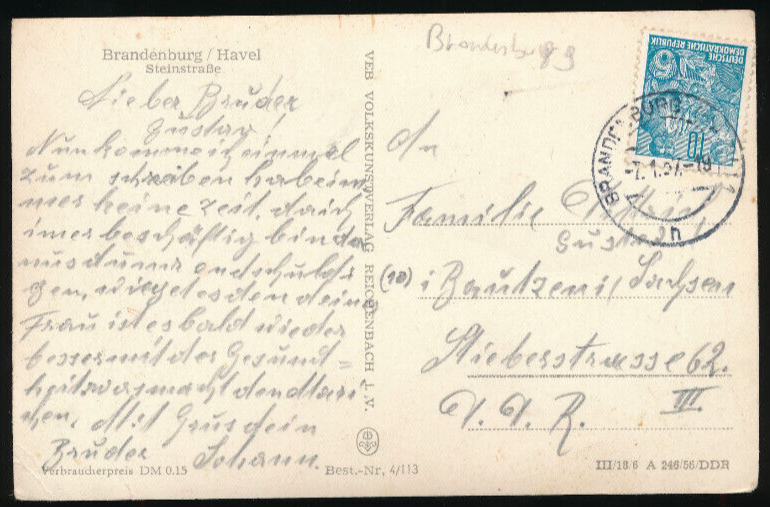 Brandenburg / Havel
Steinstraße
Lieber Bruder
Gustav!
Nun komme ich einmal
zum schreiben habe im
mer keine zeit, da ich
imer beschäftig bin da
mus du uns endschuldi
gen, wie get es den deine
Frau ist es bald wieder
besser mit der Gesund=
heit was macht den Mari
chen. Mit Gruss dein
Bruder Johann.
Verbraucherpreis DM 0.15
VEB VOLKSKUNSTVERLAG REICHENBACH I. V.
Best.-Nr. 4/113
Brandenburg
DEUTSCHE
DEMOKRATISCHE REPUBLIK
10
BRANDENBURG
-7.1.57.-19
h
An
Familie
Gustav
(10) i Bautzen i, Sachsen
Stieberstrasse 62.
III.
D. D. R.
III/18/6 A 246/56/DDR